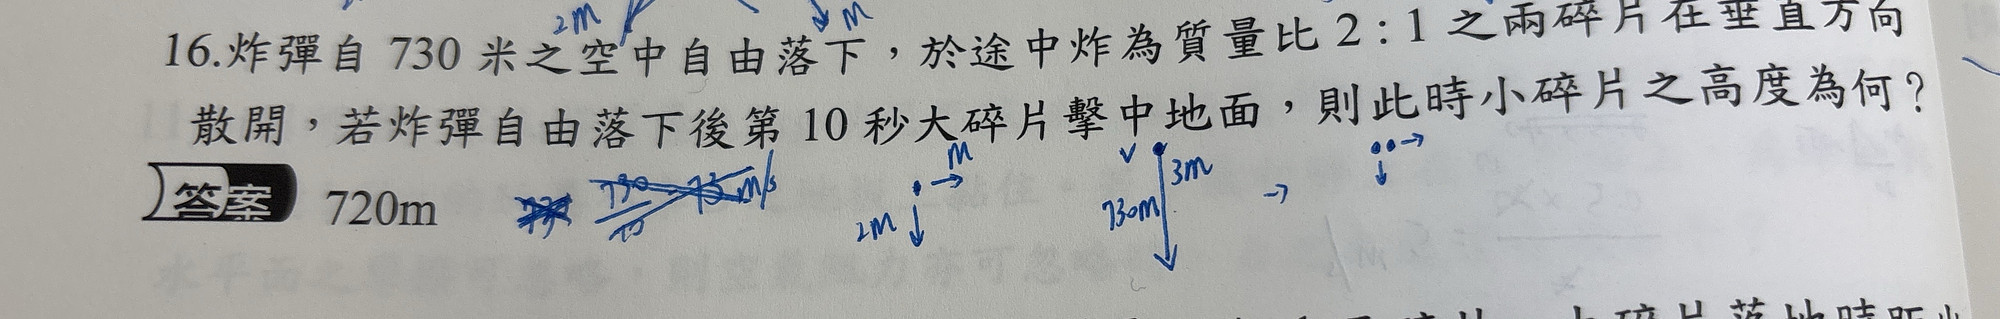 2M M
16.炸彈自 730 米之空中自由落下，於途中炸為質量比 2：1 之兩碎片在垂直方向
散開，若炸彈自由落下後第 10 秒大碎片擊中地面，則此時小碎片之高度為何？
答案 720m
M
2M
V 3M
730M